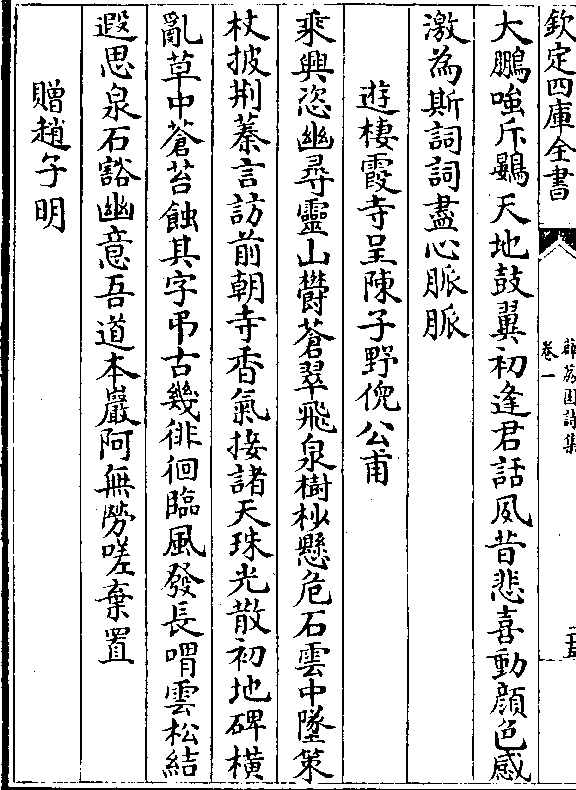 欽定四庫全書
辟疆園詩集
卷一
五
大鵬嗤斥鷃天地鼓翼初逢君話夙昔悲喜動顔色感
激為斯詞詞盡心脈脈
遊棲霞寺呈陳子野倪公甫
乘興恣幽尋靈山欝蒼翠飛泉樹杪懸危石雲中墜策
杖披荆蓁言訪前朝寺香氣接諸天珠光散初地碑橫
亂草中蒼苔蝕其字弔古幾徘徊臨風發長喟雲松結
遐思泉石豁幽意吾道本巖阿無勞嗟棄置
贈趙子明